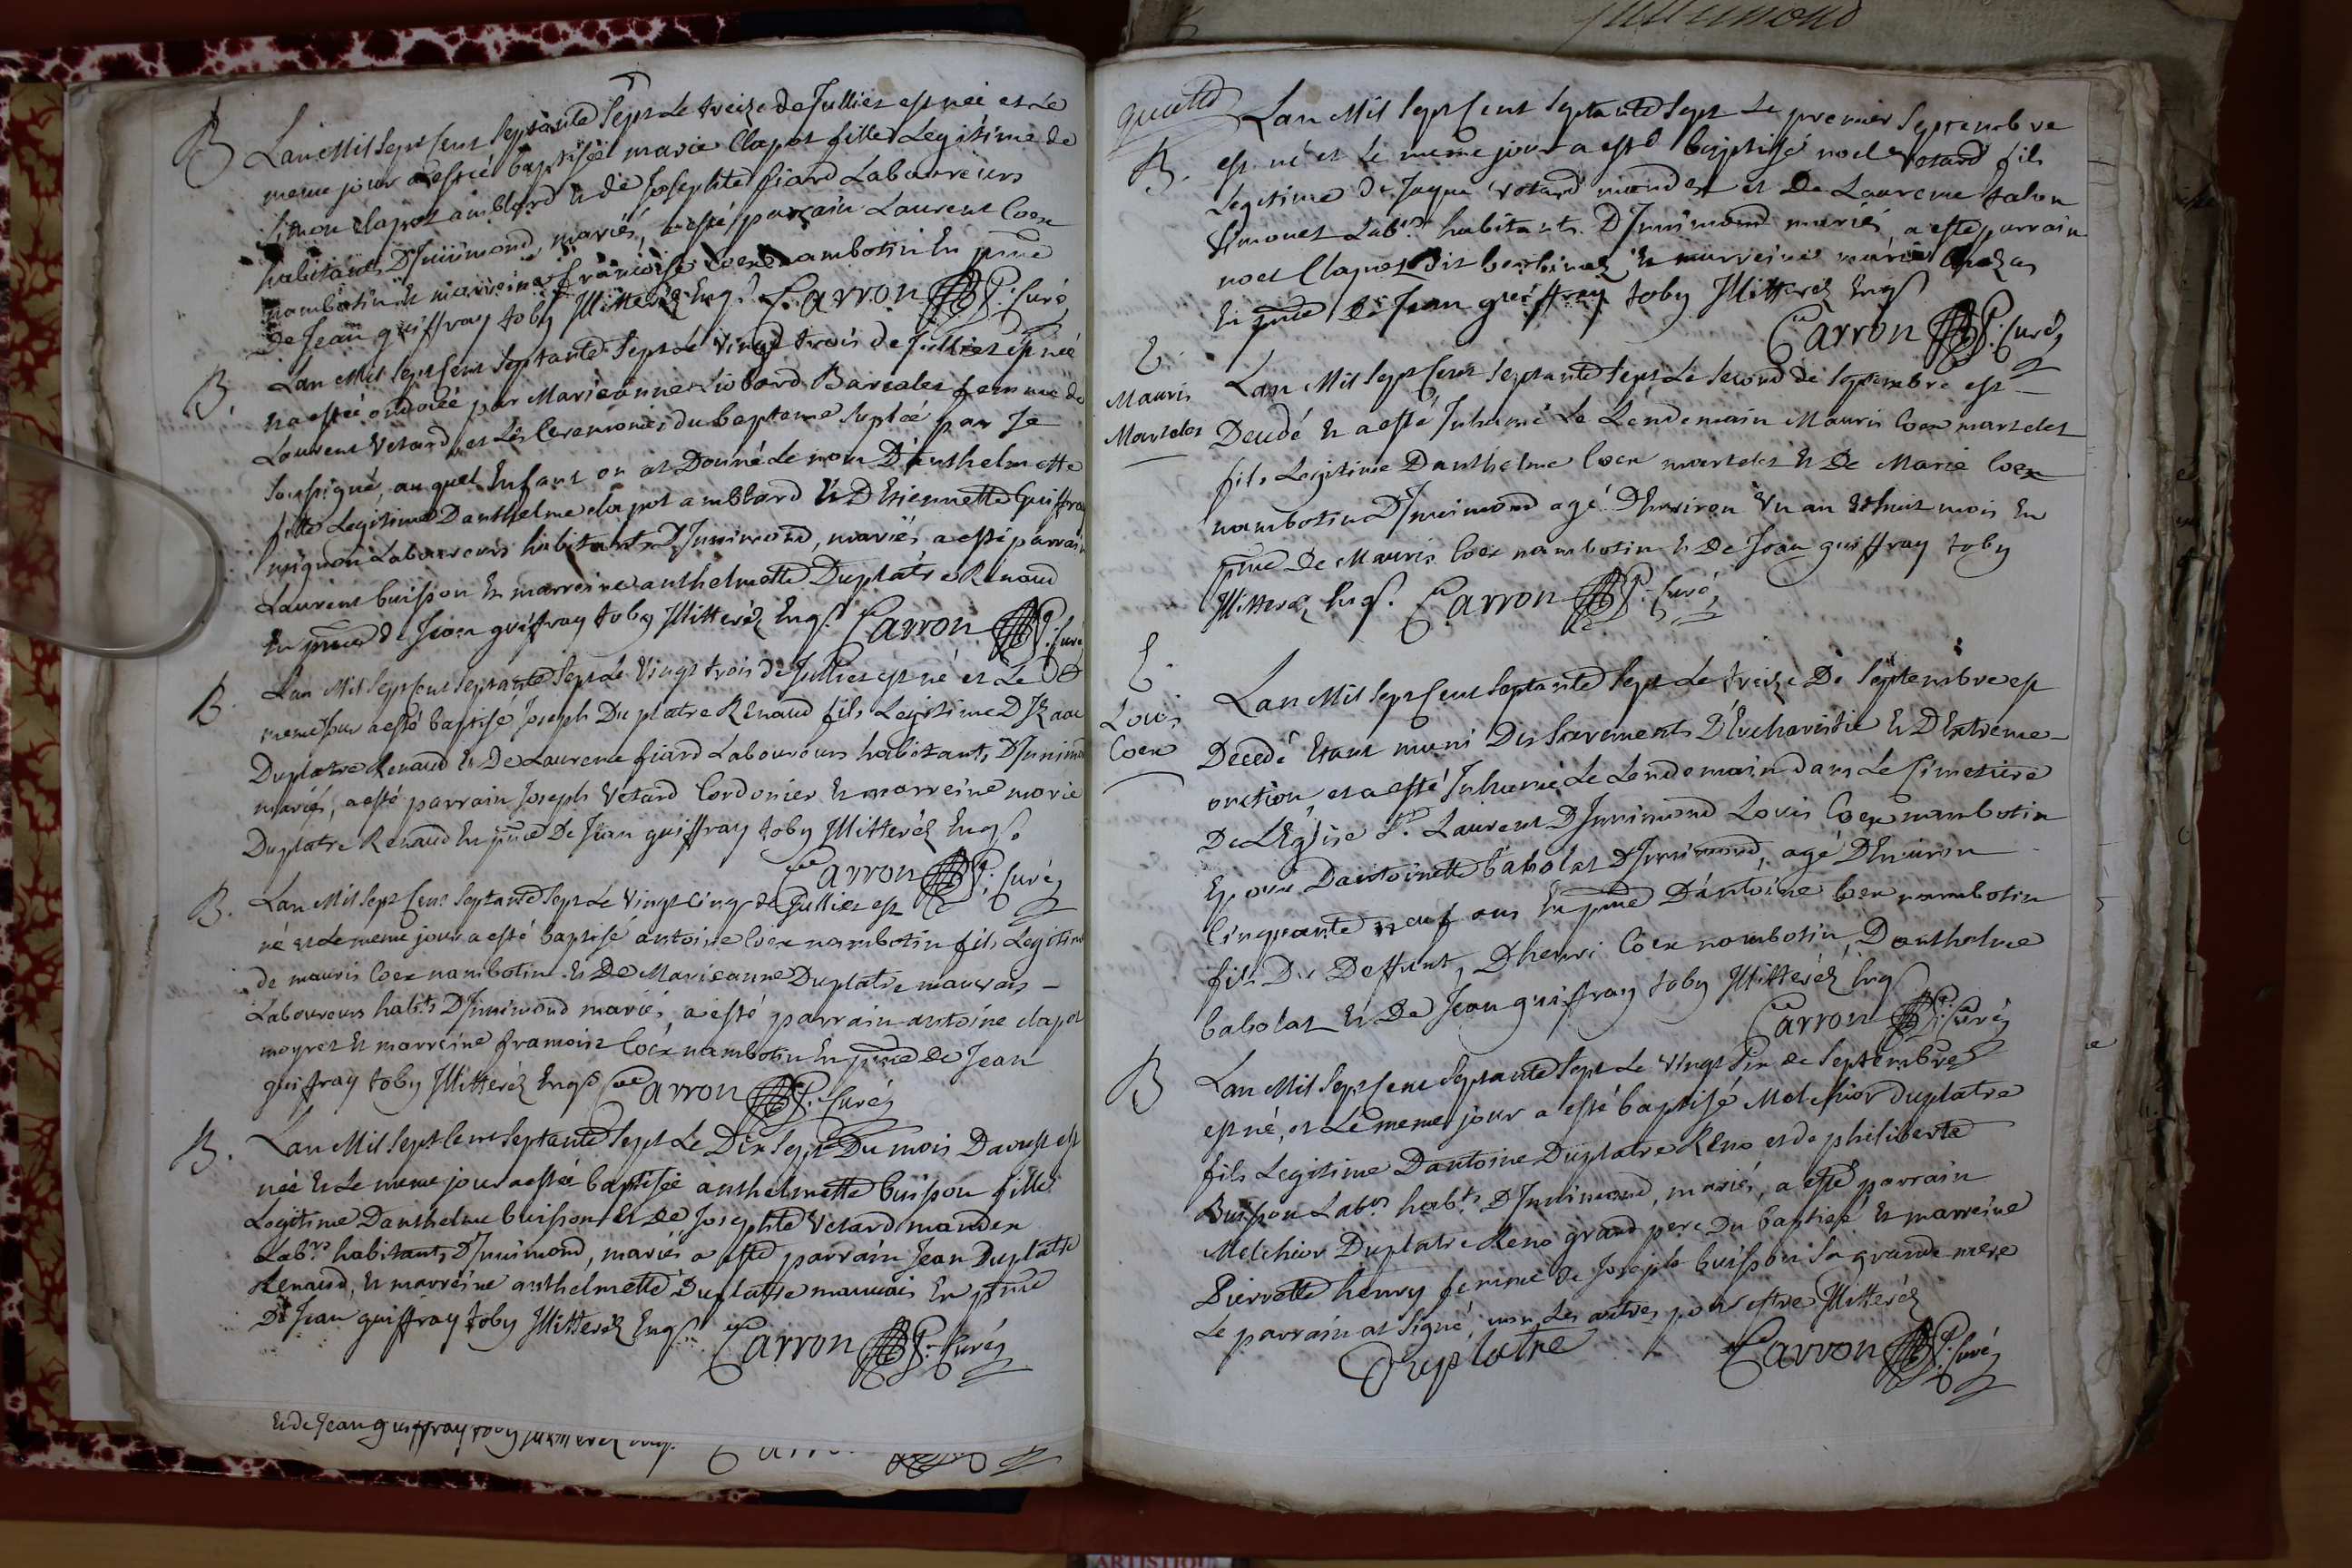 B. Lan Mil Sept Cent Septante Sept Le treize de Jullies est née et Le
meme jour a estée baptisée marie Clapot fille Legitime de
Simon Clapot amblard & de Josephte fiard Laboureurs
habitants DJnnimond, mariés, a esté parrain Laurent Coex
nambotin & marreine françoise Coex nambotin En pnce
De Jean guiffray toby Jllitteréz Enqs. Carron P. Curé
B. Lan Mil Sept Cent Septante Sept Le vingt trois de Jullies est née
& a estée ondoiée par Marieanne Liobard Barcales femme de
Laurent Vetard, et Les Ceremonies du bapteme supleé par Je
Soussigné, auquel Enfant on at Donné Le nom Danthelmette
fille Legitime Danthelme clapot amblard & DEtiennette Guiffray
mignon Laboureurs habitants DJnnimond, mariés a esté parrain
Laurent buisson & marreine anthelmette Duplatre Renaud
En pnce de Jean guiffray toby Jllitteréz Enqs. Carron P. Curé
B. Lan Mil Sept Cent Septante Sept Le Vingt trois de Jullies est né et Le
meme jour a esté baptisé Joseph Duplatre Renaud fils Legitime DJsaac
Duplatre Renaud & De Laurence fiard Laboureurs habitants DJnnimond
mariés, a esté parrain Joseph Vetard Cordonier & marreine marie
Duplatre Renaud En pnce De Jean guiffray toby Jllitteréz Enqs.
Carron P. Curé
B. Lan Mil Sept Cent Septante Sept Le Vingt Cinq de Jullies est
né et Le meme jour a esté baptisé antoine Coex nambotin fils Legitime
de mauris Coex nambotin & De Marieanne Duplatre mauvais
Laboureurs habts DJnnimond mariés, a esté parrain antoine clapot
moyret & marreine francoise Coex nambotin En pnce de Jean
guiffray toby Jllitteréz Enqs Carron P. Curé
B. Lan Mil Sept Cent Septante Sept Le Dix Sept Du mois Daoust est
née & Le meme jour a estée baptisée anthelmette buisson fille
Legitime Danthelme buisson & De Josephte Vetard mander
Labrs habitants DJnnimond, mariés a esté parrain Jean Duplatre
Renaud, & marreine anthelmette Duplatre mauvais En pnce
De Jean guiffray toby Jllitteréz Enqs. Carron P. Curé
& de Jean guiffray toby Jllitteréz Enqs. Carron
B. Lan Mil Sept Cent Septante Sept Le premier Septembre
est né et Le meme jour a esté baptisé noel Vetard fils
Legitime de Jaque Vetard mander et De Laurence talon
Simonet Labrs habitants DJnnimond mariés, a esté parrain
noel Clapot dit & marreine marie
En pnce De Jean guiffray toby Jllitteréz Enqs
Carron P. Curé
E.
Mauris
Martelet
Lan Mil Sept Cent Septante Sept Le Second de Septembre est
Decedé & a esté Jnhumé Le Lendemain Mauris Coex martelet
fils Legitime Danthelme Coex martelet & De Marie Coex
nambotin DJnnimond agé DEnviron Vn an & huit mois En
pnce De Mauris Coex nambotin & De Jean guiffray toby
Jllitteréz Enqs. Carron P. Curé
E.
Louis
Coex
Lan Mil Sept Cent Septante Sept Le treize De Septembre est
Decedé Etant muni Des Sacrements DEucharistie & DExtreme
onction, et a esté Jnhumé Le Lendemain dans Le Cimetiere
De LEglise St. Laurent DJnnimond Louis Coex nambotin
Epoux Dantoinette babolat DJnnimond, agé DEnviron
Cinquante neuf ans En pnce Dantoine Coex nambotin
fils Du Deffunt, Dhenri Coex nambotin, Danthelme
babolat & De Jean guiffray toby Jllitteréz Enqs
Carron P. Curé
B Lan Mil Sept Cent Septante Sept Le Vingt Six de Septembre
est né, et Le meme jour a esté baptisé Melchior duplatre
fils Legitime Dantoine Duplatre Reno et de philiberte
Buisson Labrs habts DJnnimond, mariés, a esté parrain
Melchior Duplatre Reno grand pere Du baptisé & marreine
Pierrette henry femme de Joseph buisson Sa grande mere
Le parrain at Signé, non Les autres pour estre Jllitteréz
Duplatre Carron P. Curé